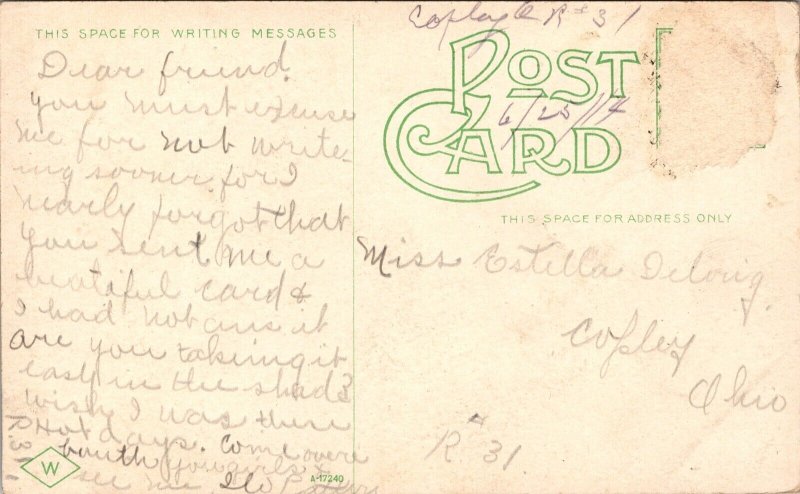 THIS SPACE FOR WRITING MESSAGES
Dear friend.
you must excuse
me for not write-
ing sooner for I
nearly forgot that
you sent me a
beatiful card &
I had not ans it
are you taking it
easy in the shade
wish I was there
Hot days. Come over
bouth you girls &
see me
R. 31
W
A-17240
Copley O R # 31
POST
CARD
6/25/14
THIS SPACE FOR ADDRESS ONLY
Miss Estella
Copley
Ohio
R # 31